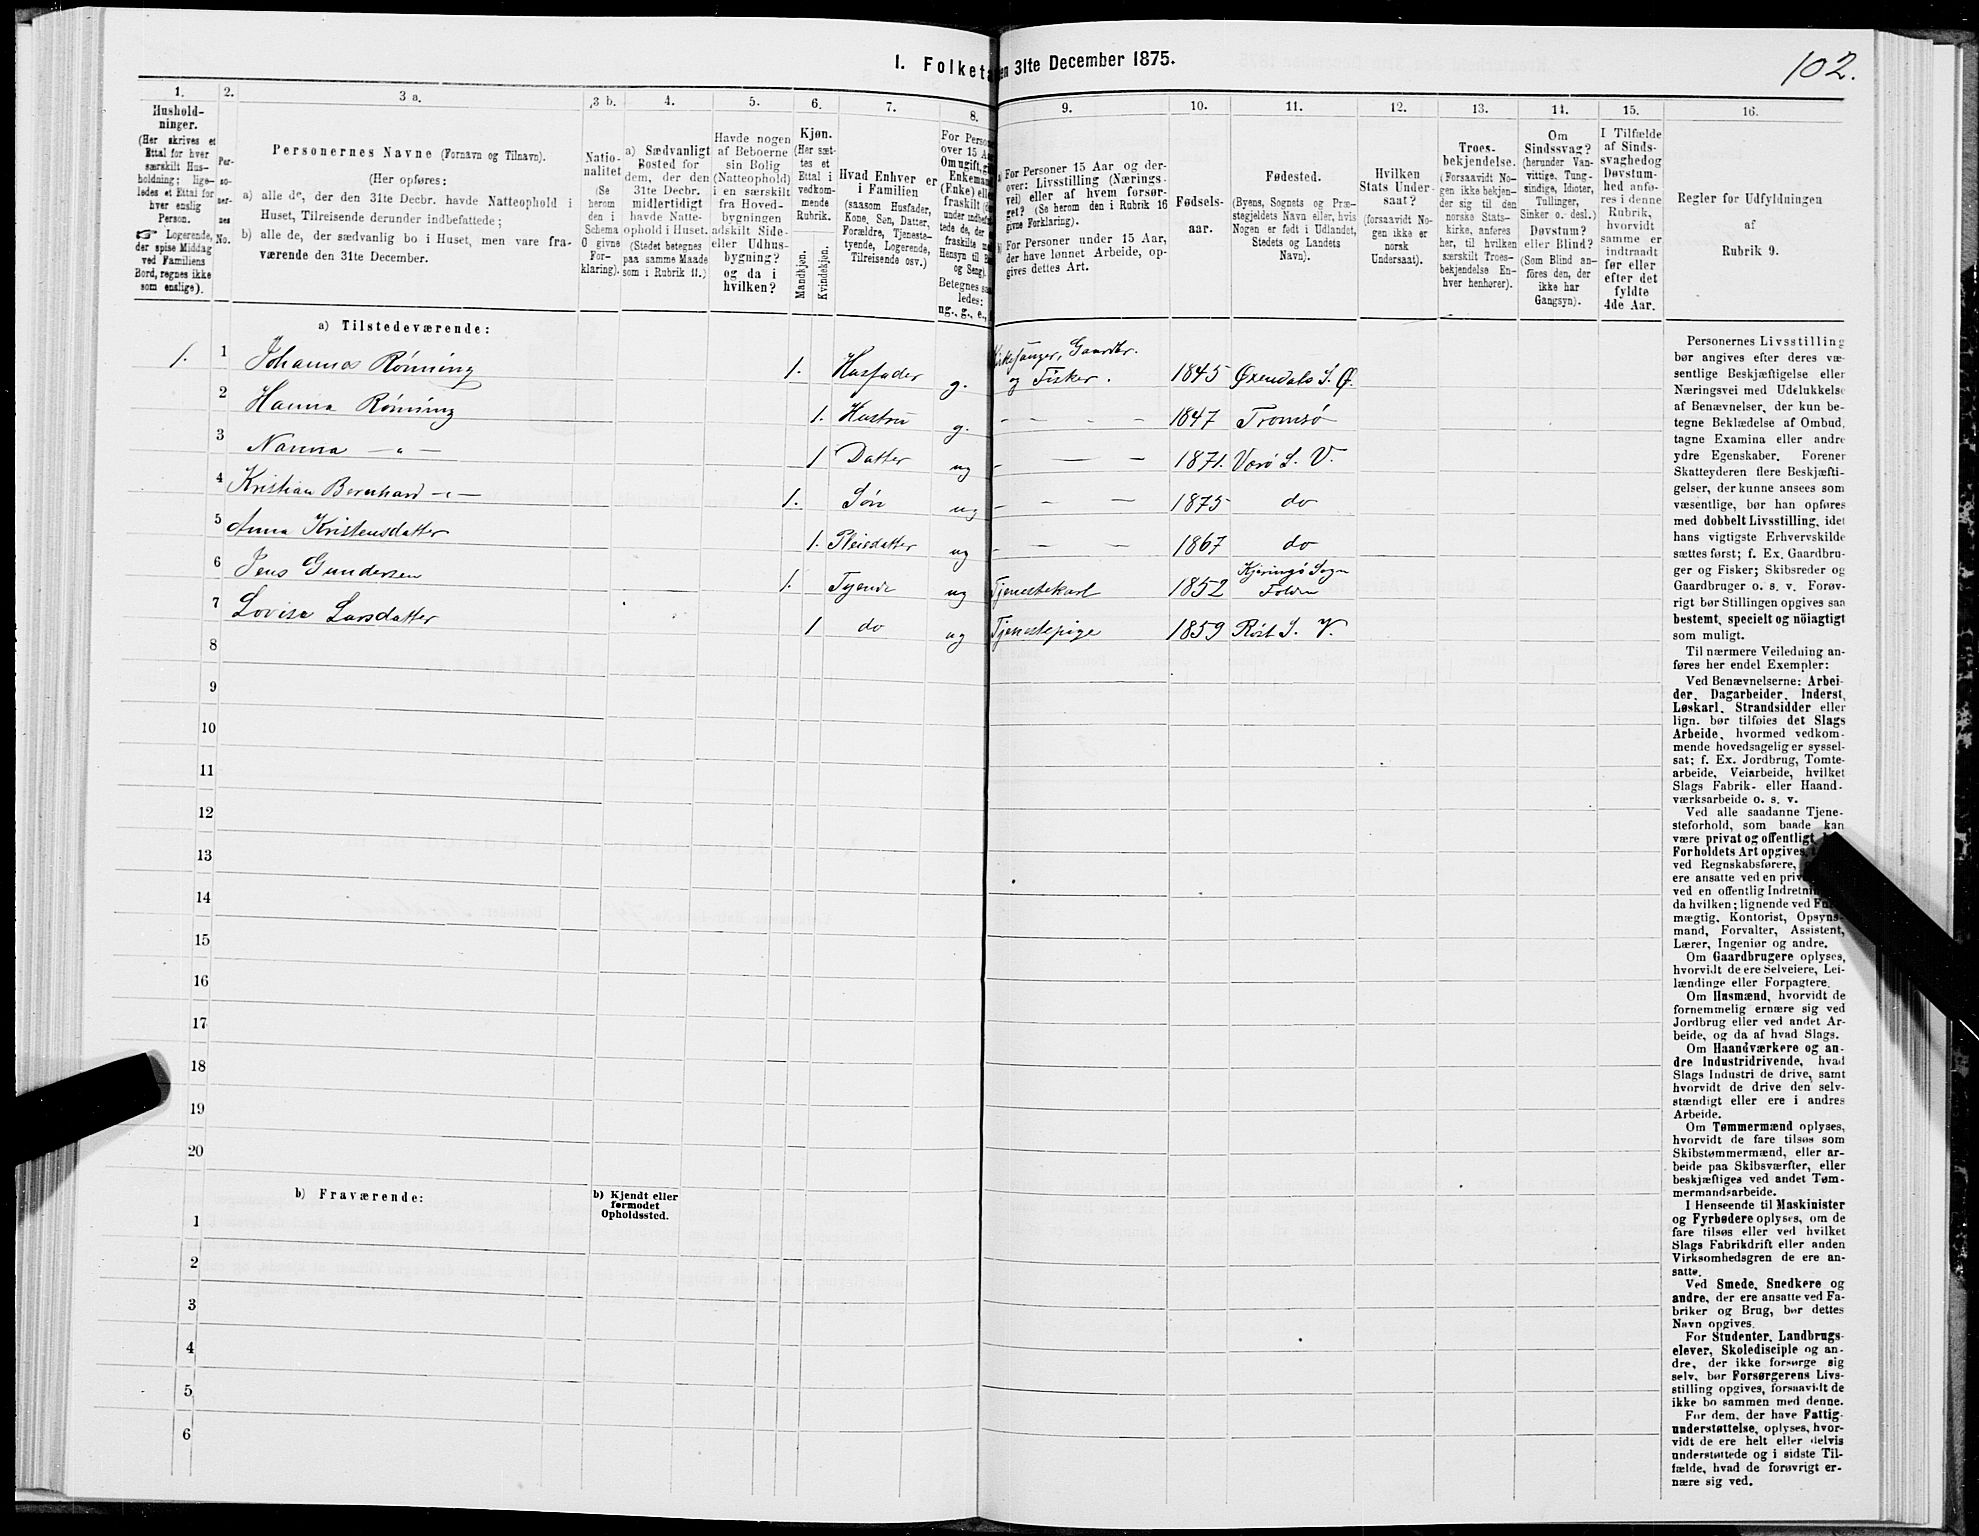 102.
I. Folketa en 31te December 1875.
1.
Hushold-
ninger.
(Her skrives et
Ettal for hver
særskilt Hus-
holdning; lige-
ledes et Ettal for
hver enslig
Person.
☞ Logerende,
der spise Middag
ved Familiens
Bord, regnes ikke
som enslige).
2.
Per-
so-
ner-
nes
No.
3 a.
Personernes Navne (Fornavn og Tilnavn).
(Her opføres:
a) alle de, der den 31te Decbr. havde Natteophold i
Huset, Tilreisende derunder indbefattede;
b) alle de, der sædvanlig bo i Huset, men vare fra-
værende den 31te December.
3 b.
Natio-
nalitet
(Se
herom
den i
Schema
O givne
For-
klaring).
4.
a) Sædvanligt
Bosted for
dem, der den
31te Decbr.
midlertidigt
havde Natte-
ophold i Huset.
(Stedet betegnes
paa samme Maade
som i Rubrik 11.)
5.
Havde nogen
af Beboerne
sin Bolig
(Natteophold)
i en særskilt
fra Hoved-
bygningen
adskilt Side-
eller Udhus-
bygning?
og da i
hvilken?
6.
Kjøn.
(Her sæt-
tes et
Ettal i
vedkom-
mende
Rubrik.
Mandkjøn.
Kvindekjøn.
7.
Hvad Enhver er
i Familien
(saasom Husfader,
Kone, Søn, Datter,
Forældre, Tjeneste-
tyende, Logerende,
Tilreisende osv.)
8.
For Person
over 15 Aa
Om ugift, gi
Enkemand
(Enke) elle
fraskilt (
under indbefat
tede de, der
fraskilte m
Hensyn til B
og Seng).
Betegnes saa
ledes:
ug., g., e.,
9.
a) For Personer 15 Aar og der-
over: Livsstilling (Nærings-
vei) eller af hvem forsør-
get? (Se herom den i Rubrik 16
givne Forklaring).
b) For Personer under 15 Aar,
der have lønnet Arbeide, op-
gives dettes Art.
10.
Fødsels-
aar.
11.
Fødested.
(Byens, Sognets og Præ-
stegjeldets Navn eller, hvis
Nogen er født i Udlandet,
Stedets og Landets
Navn).
12.
Hvilken
Stats Under-
saat?
(forsaavidt No-
gen ikke er
norsk
Undersaat).
13.
Troes-
bekjendelse.
(Forsaavidt No-
gen ikke bekjen-
der sig til den
norske Stats-
kirke, anføres
her, til hvilken
særskilt Troes-
bekjendelse En-
hver henhører).
14.
Om
Sindssvag?
(herunder Van-
vittige, Tung-
sindige, Idioter,
Tullinger,
Sinker o. desl.)
Døvstum?
eller Blind?
(Som Blind an-
føres den, der
ikke har
Gangsyn).
15.
I Tilfælde
af Sinds-
svaghed og
Døvstum-
hed anfø-
res i denne
Rubrik,
hvorvidt
samme er
indtraadt
før eller
efter det
fyldte
4de Aar.
16.
Regler for Udfyldningen
af
Rubrik 9.
a) Tilstedeværende:
1. 1 Johannes Rønning 1. Husfader g. Kirkesanger, Gaardbr.
og Fisker. 1845 Øxendals S. Ø.
2 Hanna Rønning 1. Hustru g. - - - 1847 Tromsø
3 Nanna - " - 1 Datter ug - - - 1871. Værø S. V.
4 Kristian Bernhard - " - 1. Søn ug - - - 1875 do
5 Anna Kristensdatter 1. Pleiedatter ug - - - 1867 do
6 Jens Gundersen 1. Tyende ug Tjenestekarl 1852 Kjeringø Sogn
Folden
7 Lovise Larsdatter 1 do ug Tjenestepige 1859 Røst S. V.
8
9
10
11
12
13
14
15
16
17
18
19
20
b) Fraværende:
b) Kjendt eller
formodet
Opholdssted.
1
2
3
4
5
6
Personernes Livsstilling
bør angives efter deres væ-
sentlige Beskjæftigelse eller
Næringsvei med Udelukkelse
af Benævnelser, der kun be-
tegne Beklædelse af Ombud,
tagne Examina eller andre
ydre Egenskaber. Forener
Skatteyderen flere Beskjæfti-
gelser, der kunne ansees som
væsentlige, bør han opføres
med dobbelt Livsstilling, idet
hans vigtigste Erhvervskilde
sættes først; f. Ex. Gaardbru-
ger og Fisker; Skibsreder og
Gaardbruger o. s. v. Forøv-
rigt bør Stillingen opgives saa
bestemt, specielt og nöiagtigt
som muligt.
Til nærmere Veiledning an-
føres her endel Exempler:
Ved Benævnelserne: Arbei-
der, Dagarbeider, Inderst,
Løskarl, Strandsidder eller
lign. bør tilføies det Slags
Arbeide, hvormed vedkom-
mende hovedsagelig er syssel-
sat; f. Ex. Jordbrug, Tomte-
arbeide, Veiarbeide, hvilket
Slags Fabrik- eller Haand-
værksarbeide o. s. v.
Ved alle saadanne Tjene-
steforhold, som baade kan
være privat og offentligt,
Forholdets Art opgives,
ved Regnskabsførere,
ere ansatte ved en priv
ved en offentlig Indretni
da hvilken; lignende ved
mægtig, Kontorist, Opsyns-
mand, Forvalter, Assistent,
Lærer, Ingeniør og andre.
Om Gaardbrugere oplyses,
hvorvidt de ere Selveiere, Lei-
lændinge eller Forpagtere.
Om Husmænd, hvorvidt de
fornemmelig ernære sig ved
Jordbrug eller ved andet Ar-
beide, og da af hvad Slags.
Om Haandværkere og an-
dre Industridrivende, hvad
Slags Industri de drive, samt
hvorvidt de drive den selv-
stændigt eller ere i andres
Arbeide.
Om Tømmermænd oplyses,
hvorvidt de fare tilsøs som
Skibstømmermænd, eller ar-
beide paa Skibsværfter, eller
beskjæftiges ved andet Tøm-
mermandsarbeide.
I Henseende til Maskinister
og Fyrbødere oplyses, om de
fare tilsøs eller ved hvilket
Slags Fabrikdrift eller anden
Virksomhedsgren de ere an-
satte.
Ved Smede, Snedkere og
andre, der ere ansatte ved Fa-
briker og Brug, bør dettes
Navn opgives.
For Studenter, Landbrugs-
elever, Skoledisciple og an-
dre, der ikke forsørge sig
selv, bør Forsørgerens Livs-
stilling opgives, forsaavidt de
ikke bo sammen med denne.
For dem, der have Fattig-
understøttelse, oplyses, hvor-
vidt de ere helt eller delvis
understøttede og i sidste Til-
fælde, hvad de forøvrigt er-
nære sig ved.